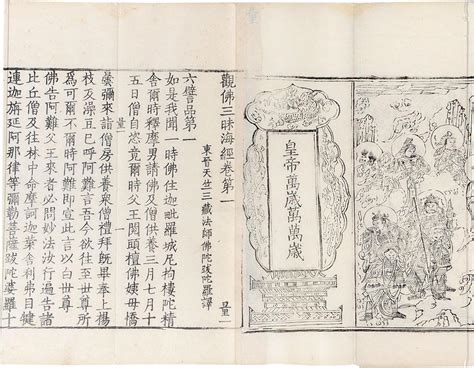 皇帝萬歲萬萬歲
觀佛三昧海經卷第一
東晉天竺三藏法師佛陀跋陀羅譯
量一
六譬品第一
如是我聞一時佛住迦毗羅城尼拘樓陀精
舍爾時釋摩男請佛及僧供養三月七月十
五日僧自恣竟爾時父王閱頭檀佛姨母憍
曇彌來詣僧房供養衆僧禮拜既畢奉上楊
枝及澡豆已呼阿難言吾今欲往至世尊所
為可爾不爾時阿難即宣此言以白世尊
佛告阿難父王來者必問妙法汝行遍告諸
比丘僧及往林中命摩訶迦葉舍利弗目犍
連迦旃延阿那律等彌勒菩薩跋陀婆羅十